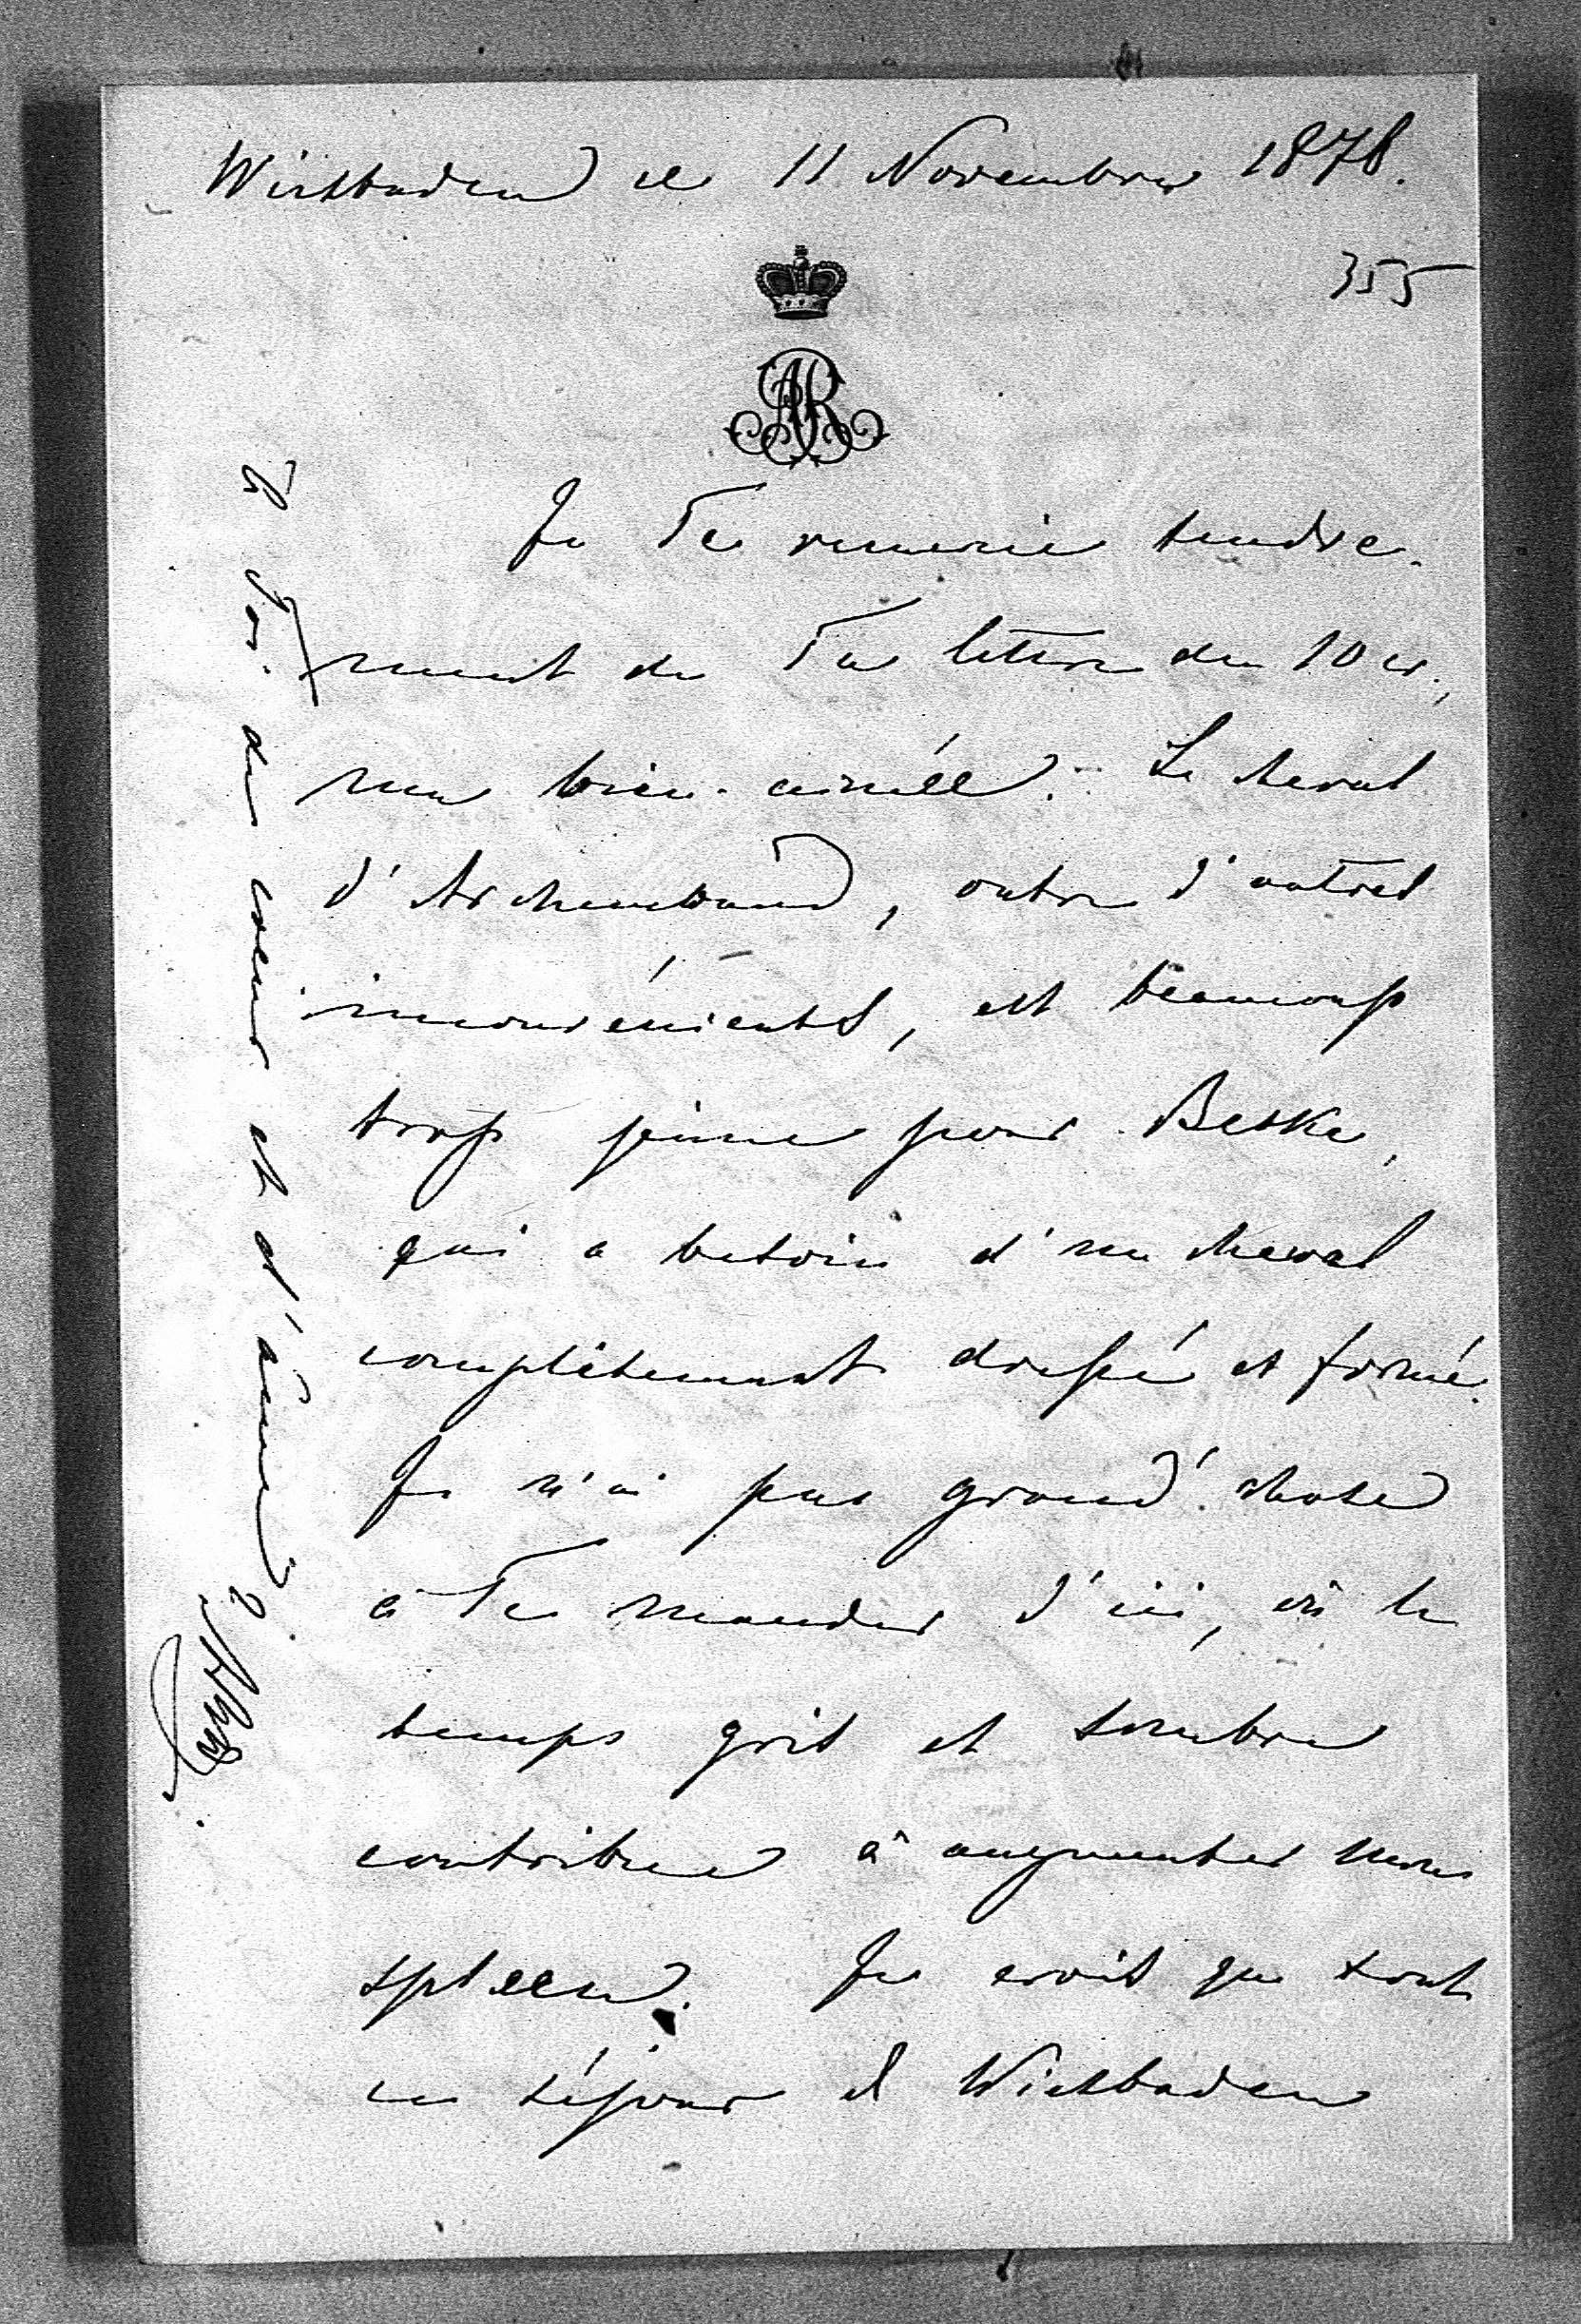 Wiesbaden le 11 Novembre 1878.
355
AR
Je Te remercie tendre-
ment de Ta lettre du 10 cr.,
ma bien-aimée. Le cheval
d'Archambaud, outre d'autres
inconvénients, est beaucoup
trop jeune pour Beske,
qui a besoin d'un cheval
complètement dressé et formé.
Je n'ai pas grand'chose
à Te mander d'ici, où le
temps gris et sombre
contribue à augmenter mon
spleen. Je crois que tout
ce séjour à Wiesbaden
à Toi de coeur et d'âme